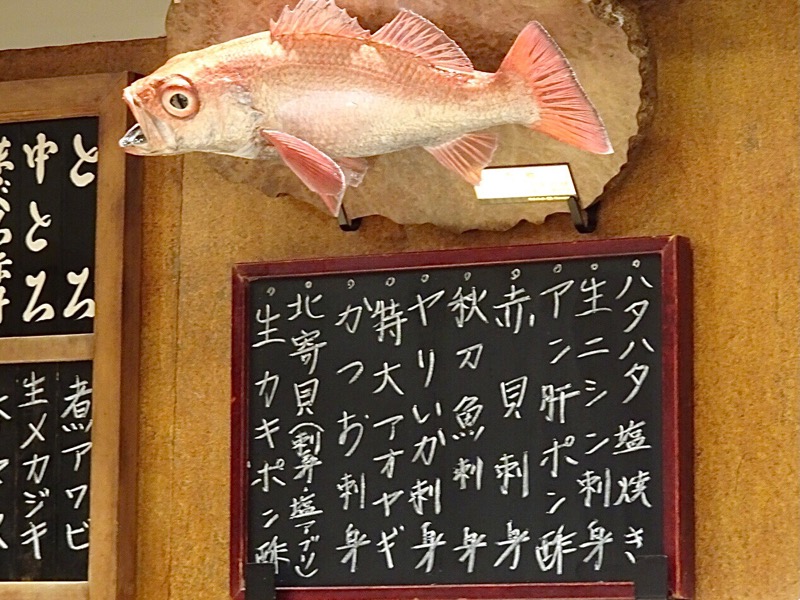 ハタハタ塩焼き
生ニシン刺身
アン肝ポン酢
赤貝刺身
秋刀魚刺身
ヤリいか刺身
特大アオヤギ
かつお刺身
北寄貝(刺身・塩アブリ)
生カキポン酢
とろ
中とろ
煮アワビ
生メカジキ